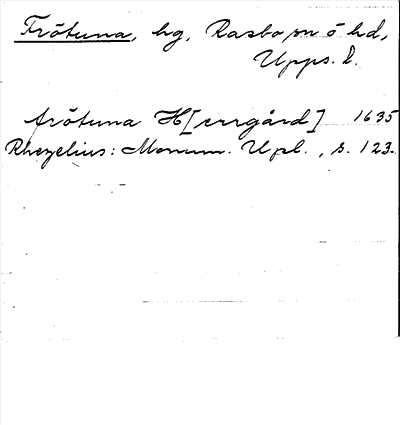 Frötuna, hg, Rasbo sn o hd,
Upps. l.
frötuna H[errgård] 1635
Rhezelius: Monum. Upl., s. 123.